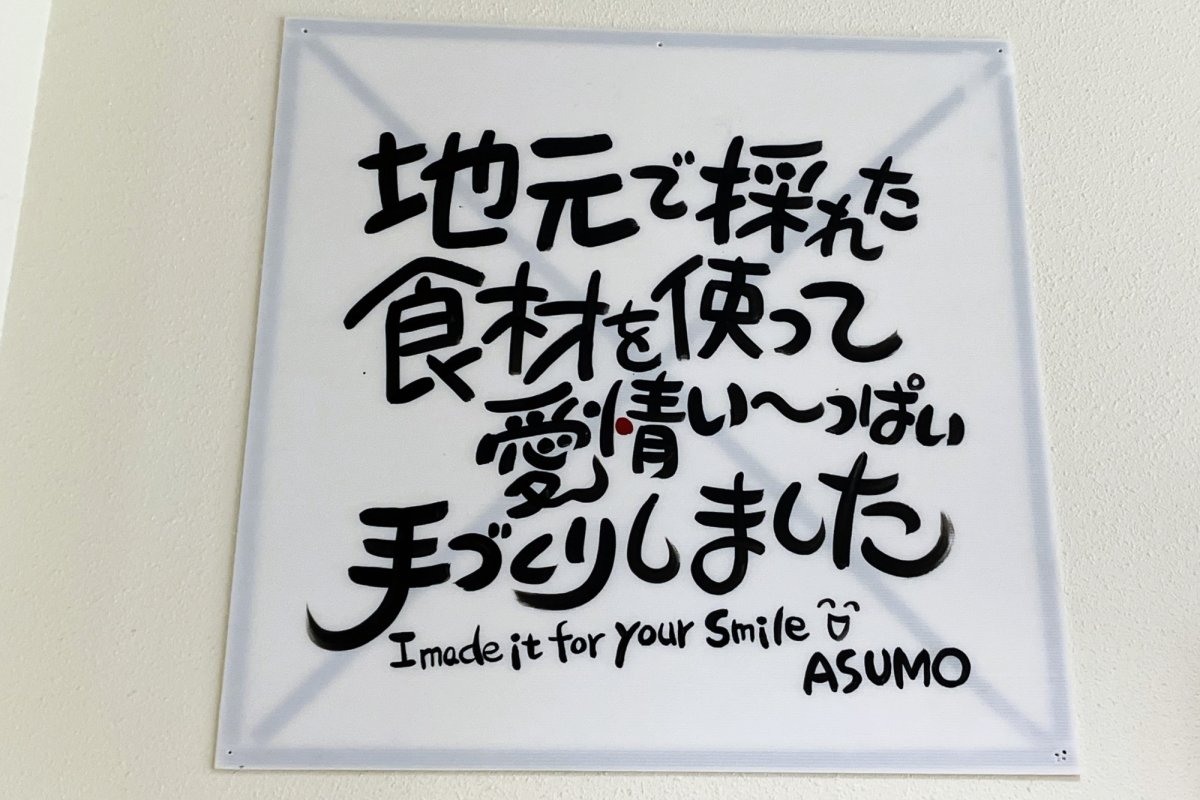 地元で採れた
食材を使って
愛情い〜っぱい
手づくりしました
I made it for your smile
ASUMO